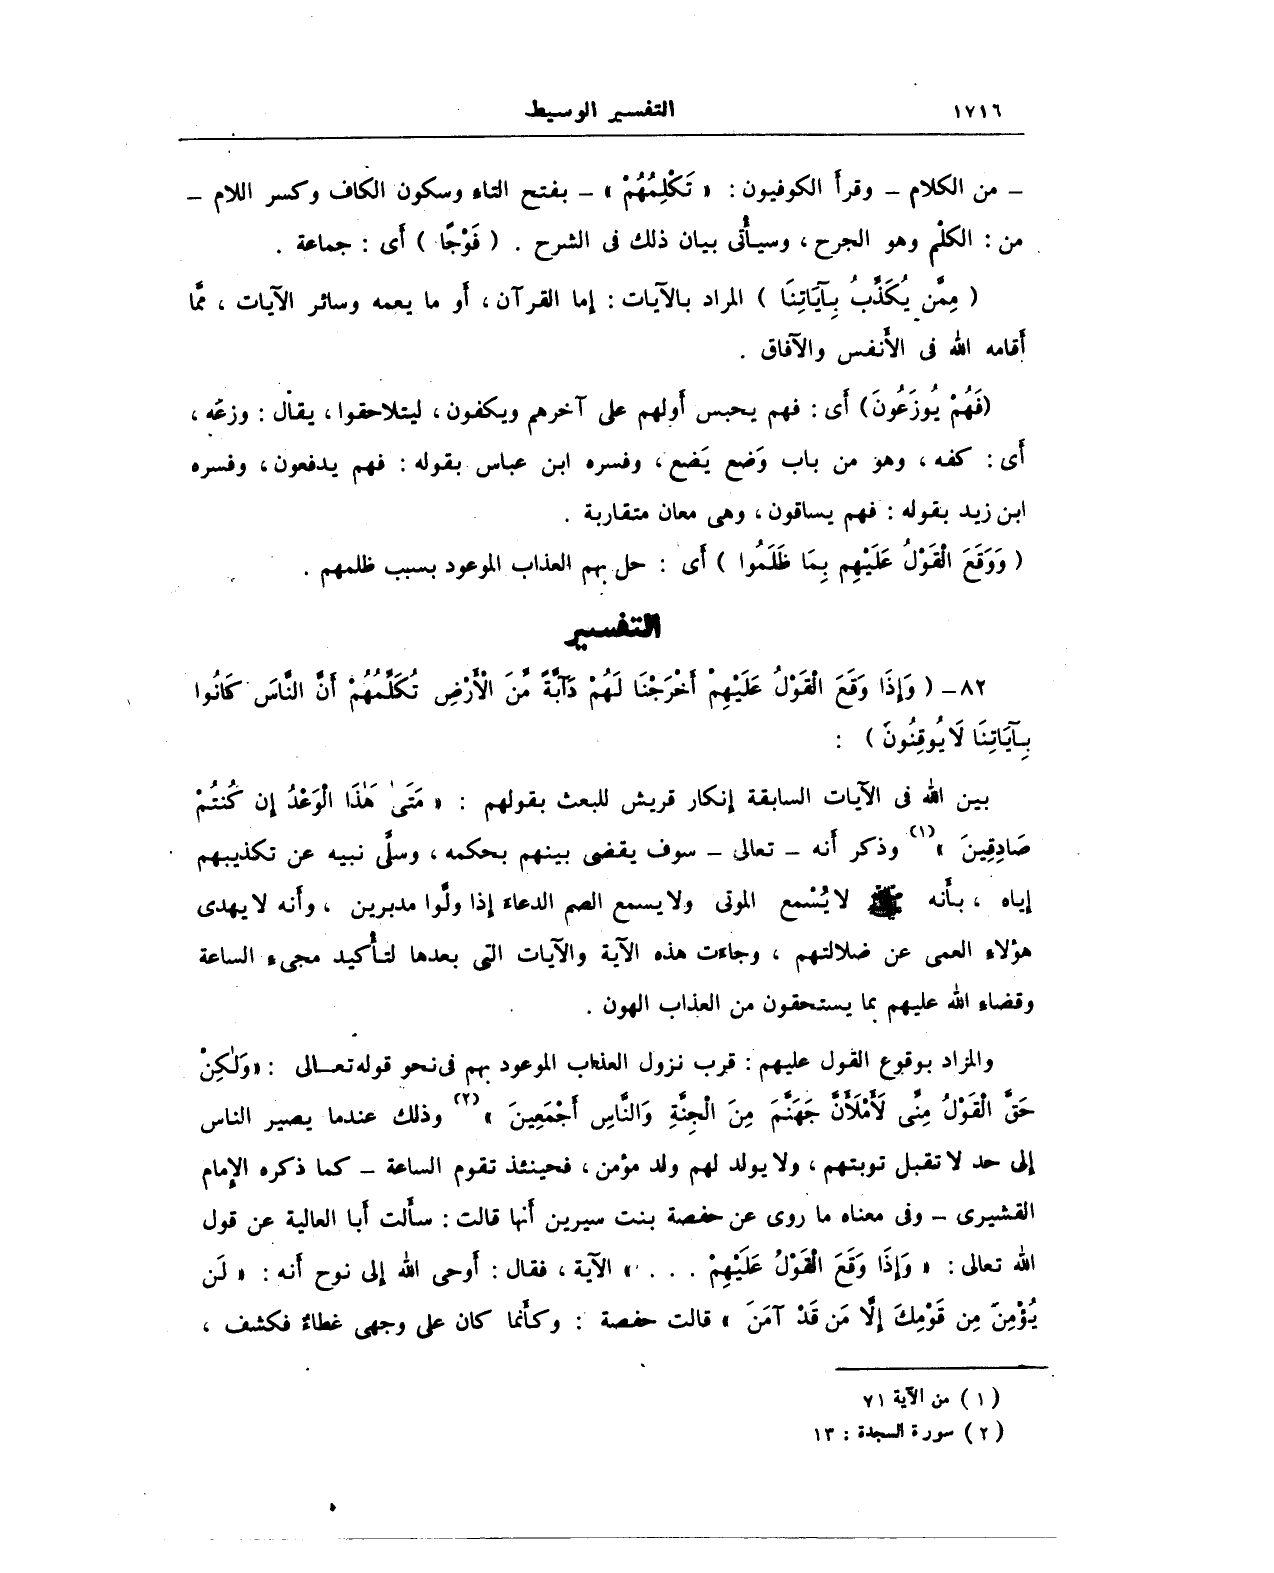 ١٧١٦ التفسير الوسيط
ـ من الكلام ـ وقرأ الكوفيون : « تَكْلِمُهُمْ » ـ بفتح التاء وسكون الكاف وكسر اللام ـ
من : الكلْم وهو الجرح ، وسيأْتى بيان ذلك فى الشرح . ( فَوْجًا ) أَى : جماعة .
( مِمَّن يُكَذِّبُ بِآيَاتِنَا ) المراد بالآيات : إما القرآن ، أَو ما يعمه وسائر الآيات ، ممَّا
أقامه الله فى الأَنفس والآفاق .
(فَهُمْ يُوزَعُونَ) أَى : فهم يحبس أَولهم على آخرهم ويكفون ، ليتلاحقوا ، يقال : وزعَه ،
أَى : كفه ، وهو من باب وَضع يَضع ، وفسره ابن عباس بقوله : فهم يدفعون ، وفسره
ابن زيد بقوله : فهم يساقون ، وهى معان متقاربة .
( وَوَقَعَ الْقَوْلُ عَلَيْهِم بِمَا ظَلَمُوا ) أَى : حل بهم العذاب الموعود بسبب ظلمهم .
التفسير
٨٢ ـ ( وَإِذَا وَقَعَ الْقَوْلُ عَلَيْهِمْ أَخْرَجْنَا لَهُمْ دَآبَّةً مِّنَ الْأَرْضِ تُكَلِّمُهُمْ أَنَّ النَّاسَ كَانُوا
بِآيَاتِنَا لَا يُوقِنُونَ ) :
بين الله فى الآيات السابقة إنكار قريش للبعث بقولهم : « مَتَىٰ هَٰذَا الْوَعْدُ إِن كُنتُمْ
صَادِقِينَ »(١) وذكر أَنه ـ تعالى ـ سوف يقضى بينهم بحكمه ، وسلَّى نبيه عن تكذيبهم
إياه ، بأَنه ﷺ لا يُسْمع الموتى ولا يسمع الصم الدعاء إذا ولَّوا مدبرين ، وأَنه لا يهدى
هؤلاء العمى عن ضلالتهم ، وجاءت هذه الآية والآيات التى بعدها لتأْكيد مجىء الساعة
وقضاء الله عليهم بما يستحقون من العذاب الهون .
والمراد بوقوع القول عليهم : قرب نزول العذاب الموعود بهم فى نحو قوله تعـالى : «وَلَٰكِنْ
حَقَّ الْقَوْلُ مِنِّى لَأَمْلَأَنَّ جَهَنَّمَ مِنَ الْجِنَّةِ وَالنَّاسِ أَجْمَعِينَ »(٢) وذلك عندما يصير الناس
إلى حد لا تقبل توبتهم ، ولا يولد لهم ولد مؤمن ، فحينئذ تقوم الساعة ـ كما ذكره الإمام
القشيرى ـ وفى معناه ما روى عن حفصة بنت سيرين أَنها قالت : سأَلت أَبا العالية عن قول
الله تعالى : « وَإِذَا وَقَعَ الْقَوْلُ عَلَيْهِمْ . . . » الآية ، فقال : أَوحى الله إلى نوح أَنه : « لَن
يُؤْمِنَ مِن قَوْمِكَ إِلَّا مَن قَدْ آمَنَ » قالت حفصة : وكأَنما كان على وجهى غطاءٌ فكشف ،
( ١ ) من الآية ٧١
( ٢ ) سورة السجدة : ١٣